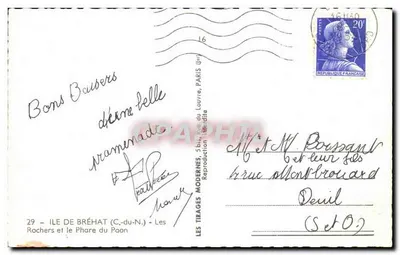 Bons Baisers
d'une belle
promenade
29 - ILE DE BRÉHAT (C.-du-N.) - Les
Rochers et le Phare du Paon
LES TIRAGES MODERNES, 5 bis, rue du Louvre, PARIS (2e)
Reproduction interdite
16
16H40
20F
REPUBLIQUE FRANÇAISE
CPAPHIL
Mr et Mme Poissant
et leur fils
rue Montbrouard
Deuil
(S et O)